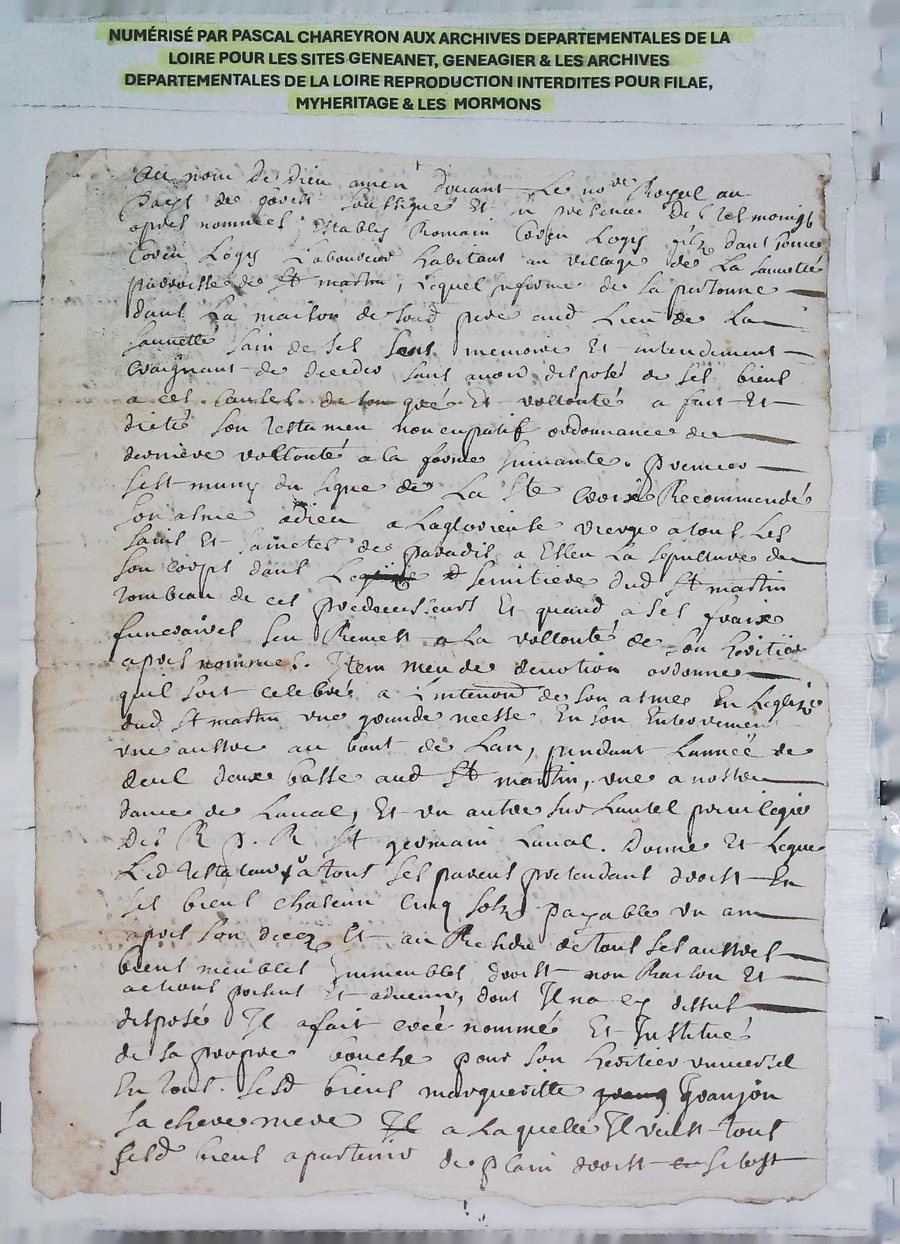 NUMÉRISÉ PAR PASCAL CHAREYRON AUX ARCHIVES DEPARTEMENTALES DE LA
LOIRE POUR LES SITES GENEANET, GENEAGIER & LES ARCHIVES
DEPARTEMENTALES DE LA LOIRE REPRODUCTION INTERDITES POUR FILAE,
MYHERITAGE & LES MORMONS
Au nom de Dieu amen douant le no.re Royal au
pays de forest soubsigné Et en presence des tesmoings
apres nommees Establis Romain Logy filz dant
Logy Laboureur habitant au village de La Sauvetté
parroisse de St martin, Lequel infirme de sa personne
dans La maison de sond pere aud Lieu de La
Sauvetté Sain de ses Sens memoire Et entendement
Craignant de deceder sans avoir disposé de ses biens
a ces causes de son gré Et vollonté a fait Et
dicté son testamen noncupatif ordonnance de
derniere vollonté a la forme suivante. premier
sest muny du signe de La Ste Croix Recommendé
son asme adieu a Laglorieuse vierge a tous Les
Saint Et Sainctes de paradis a Esleu La sepulture de
son corps dans Semitiere dud St martin
tombeau de ces predecesseurs Et quand a ses fraix
funeraires sen Remest a La vollonté de son heritier
apres nommes. Item meu de devotion ordonne
quil soit celebré a Lintention de son asme En Leglize
dud St martin une grande messe En son Enterremen
une austre au bout de Lan, pendant Lannéé de
deul deux basse aud St martin, une a nostre
dame de Laval, Et un autre sur Lautel privilegie
des R P. R St germain Laval. donne Et Legue
Led testateur a tous ses parens pretendant droist En
ses biens chascun cinq solz payable un an
apres son decez Et au Residu de tous ses austres
biens meubles Immeubles droist non Raison Et
actions presens Et advenir, dont Il na cy dessus
disposé Il a fait creé nommé Et Institué
de sa propre bouche pour son heritier universel
En tous sesd biens margueritte Granjon
sa chere mere a Laquelle Il veust tous
sesd biens apartenir de plain droist